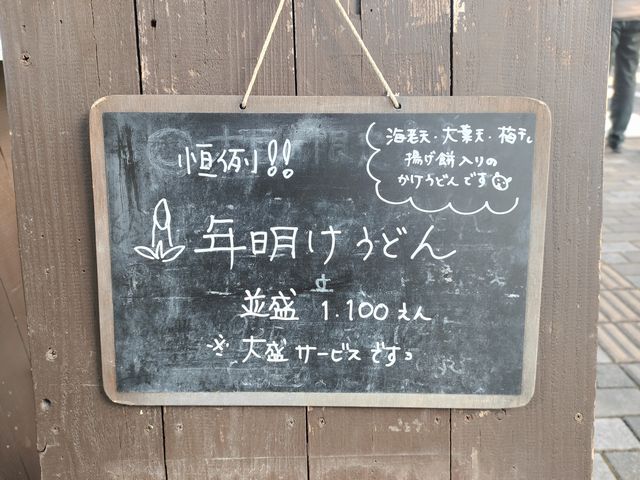 恒例!!
海老天・大葉天・梅干し
揚げ餅入りの
かけうどんです
年明けうどん
並盛 1.100えん
※大盛サービスです